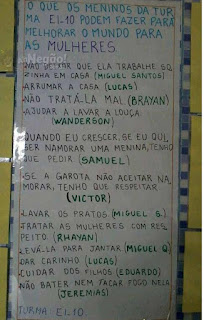 O QUE OS MENINOS DA TUR
MA EI.10 PODEM FAZER PARA
MELHORAR O MUNDO PARA
AS MULHERES.
NÃO DEIXAR QUE ELA TRABALHE SO
ZINHA EM CASA (MIGUEL SANTOS)
ARRUMAR A CASA (LUCAS)
NÃO TRATÁ-LA MAL (BRAYAN)
AJUDAR A LAVAR A LOUÇA.
(WANDERSON)
QUANDO EU CRESCER, SE EU QUI
SER NAMORAR UMA MENINA, TENHO
QUE PEDIR (SAMUEL)
SE A GAROTA NÃO ACEITAR NA
MORAR, TENHO QUE RESPEITAR
(VICTOR)
LAVAR OS PRATOS (MIGUEL B.)
TRATAR AS MULHERES COM RES
PEITO (RHAYAN)
LEVÁ-LA PARA JANTAR (MIGUEL O.)
DAR CARINHO (LUCAS)
CUIDAR DOS FILHOS (EDUARDO)
NÃO BATER NEM TACAR FOGO NELA
(JEREMIAS)
TURMA: EI.10